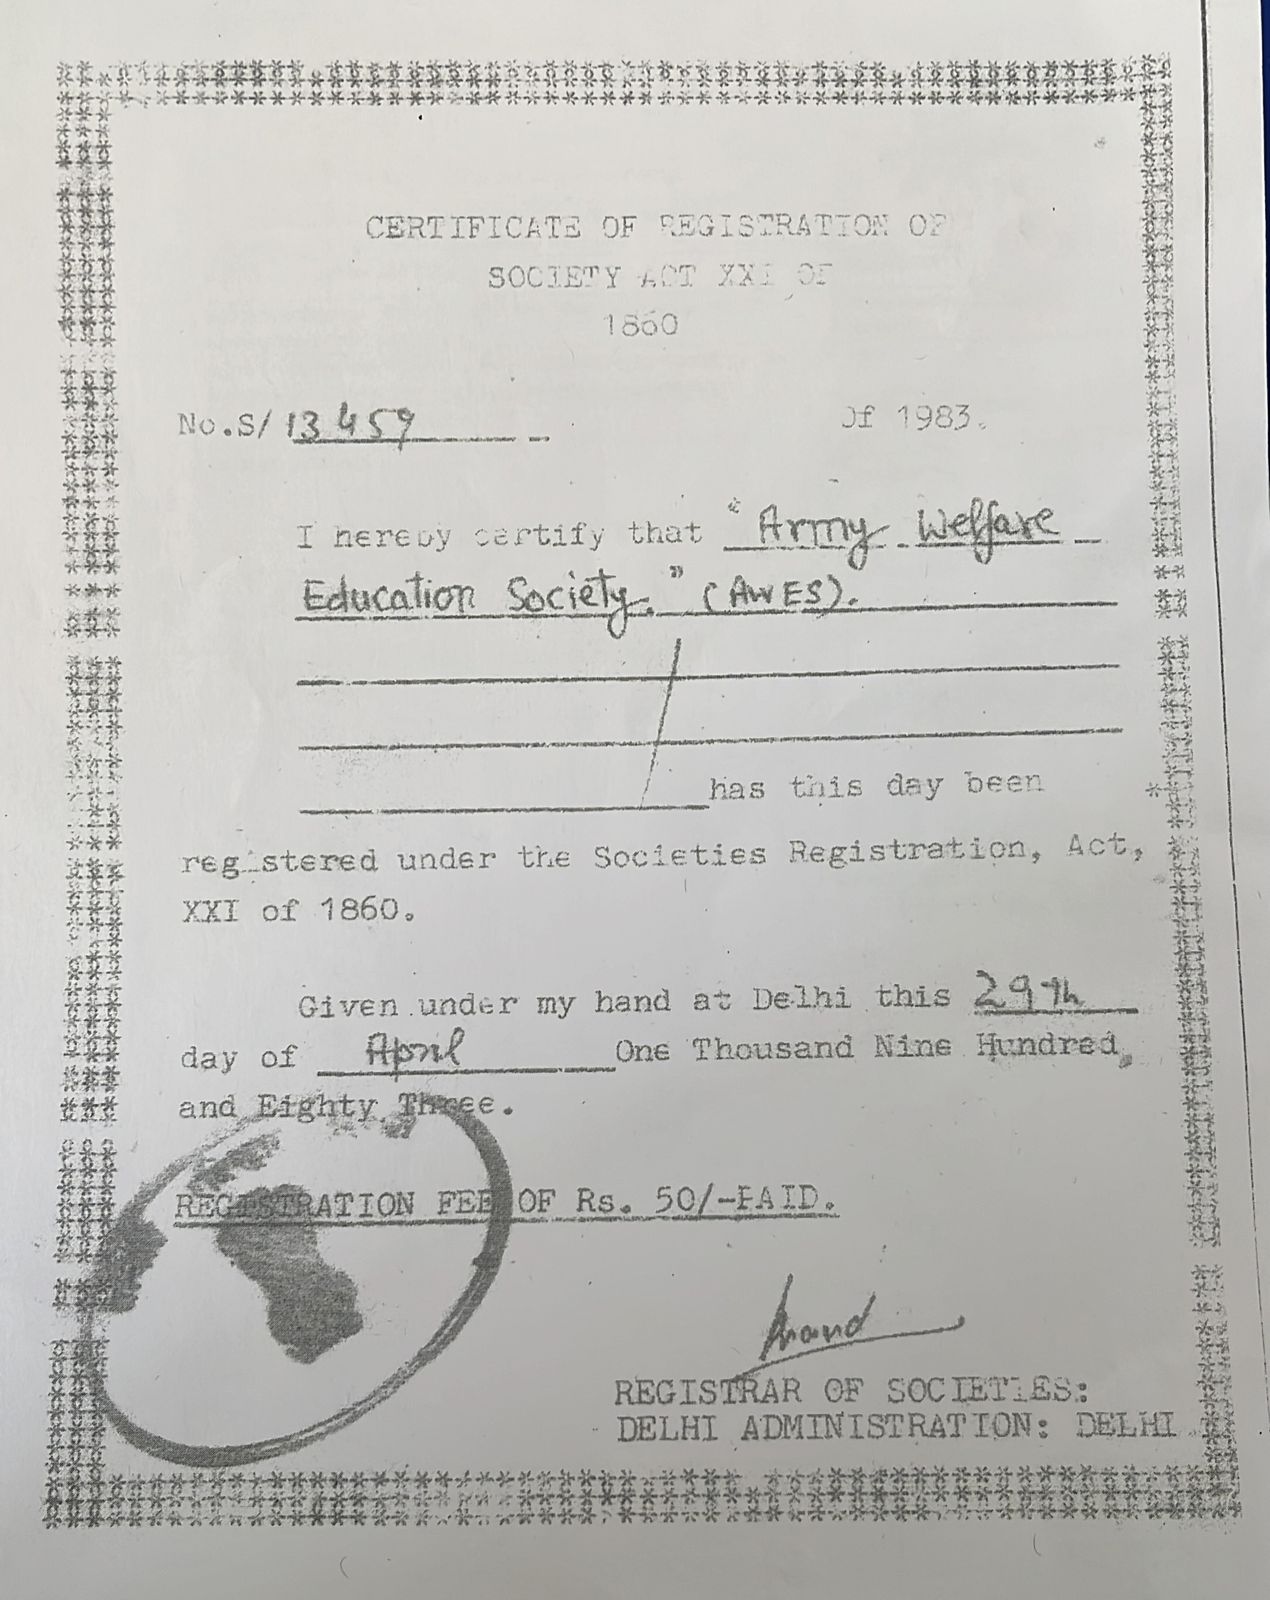 CERTIFICATE OF REGISTRATION OF
SOCIETY ACT XXI OF
1860
No.S/ 13459 Of 1983.
I hereby certify that "Army Welfare
Education Society." (AWES).
has this day been
registered under the Societies Registration, Act,
XXI of 1860.
Given under my hand at Delhi this 29th
day of April One Thousand Nine Hundred,
and Eighty Three.
REGISTRATION FEE OF Rs. 50/-PAID.
REGISTRAR OF SOCIETIES:
DELHI ADMINISTRATION: DELHI